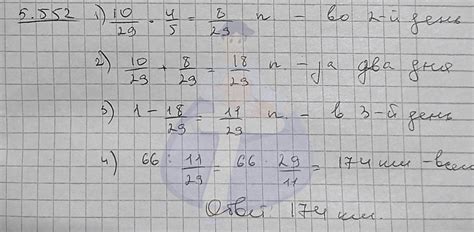 5.552 1) 10/29 · 4/5 = 8/29 п – во 2-й день
2) 10/29 + 8/29 = 18/29 п – за два дня
3) 1 – 18/29 = 11/29 п – в 3-й день
4) 66 : 11/29 = 66 · 29/11 = 174 км – всего
Ответ 174 км.